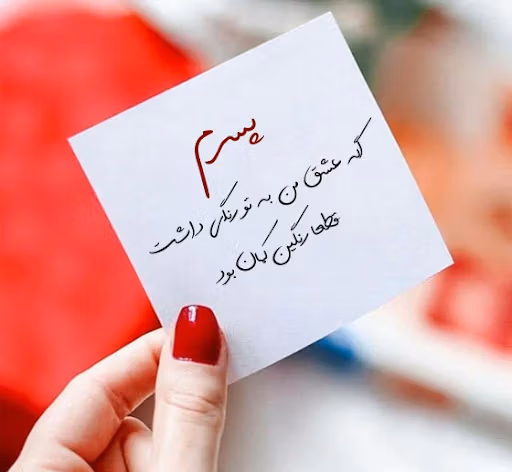 پسرم
گه عشق من به تو رنگی داشت
قطعا رنگین کمان بود